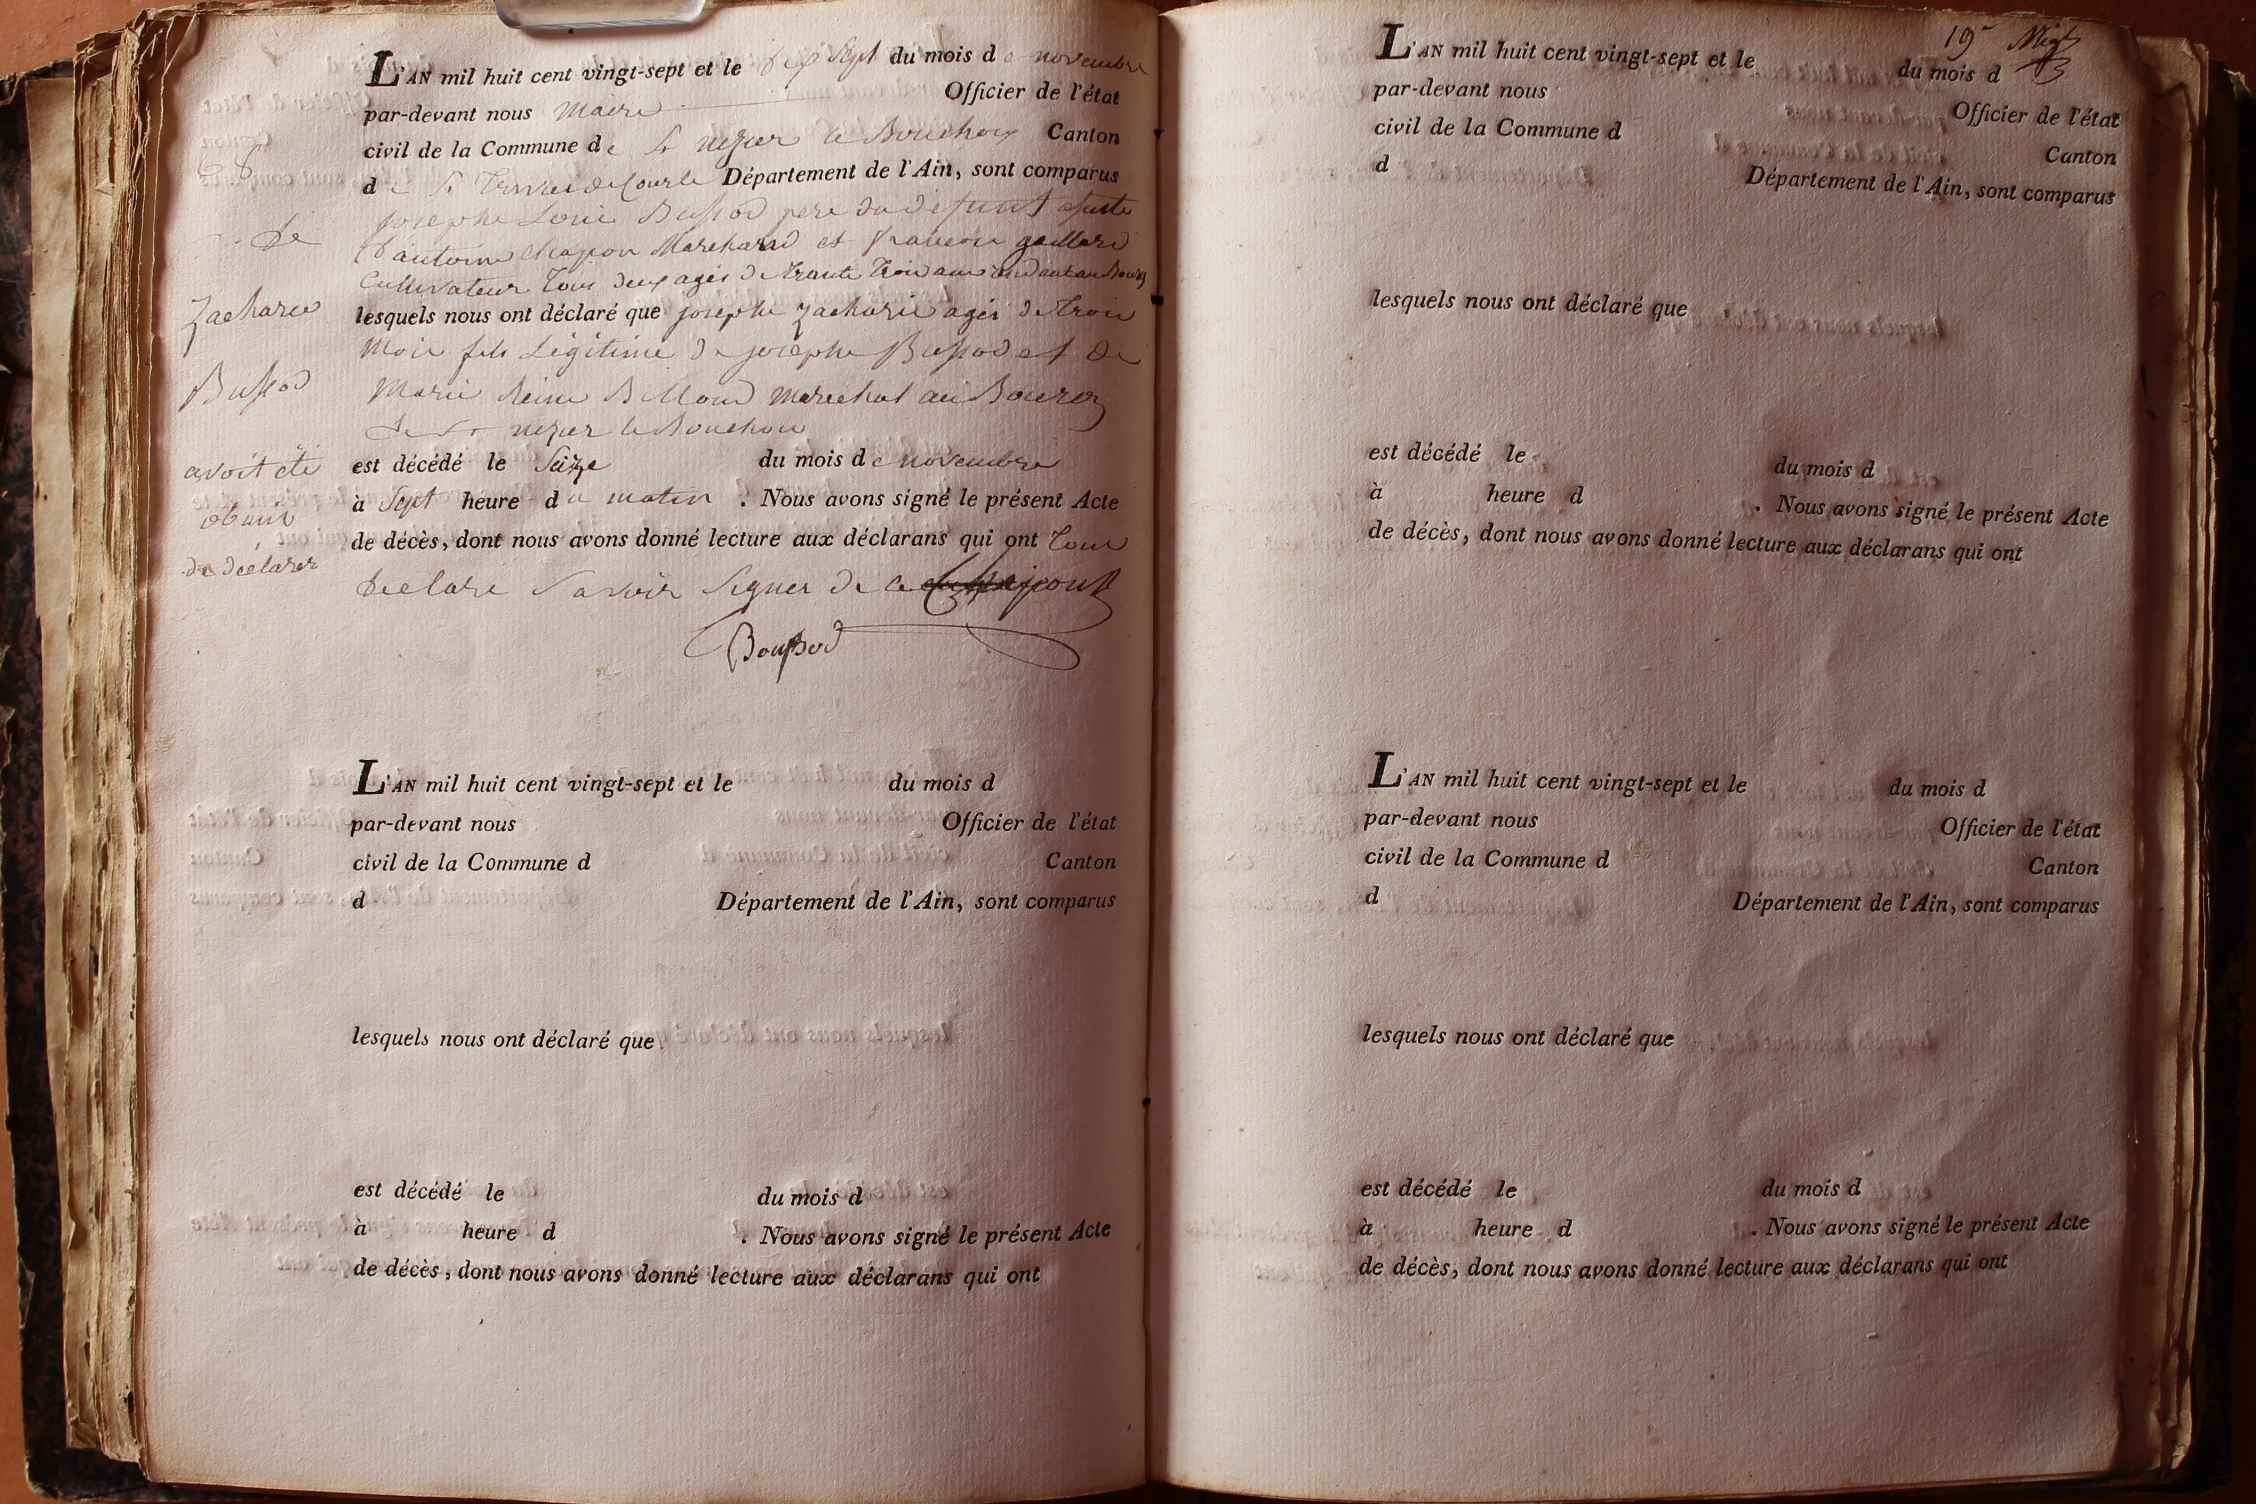 L'AN mil huit cent vingt-sept et le dix Sept du mois de novembre
par-devant nous Maire Officier de l'état
civil de la Commune de St nizier le Bouchoux Canton
de St Trivier de Courte Département de l'Ain, sont comparus
josephe Louis Bussod pere du défunt
d'antoine chapon Marchand et francois gaillard
Cultivateur Tous deux agés de trante Trois ans au Bourg
lesquels nous ont déclaré que josephe zacharie agés de Trois
Mois fils Légitime de josephe Bussod et de
Marie Reine Billoud marechal au Bourg
de St nizier le Bouchoux
est décédé le Seize du mois de novembre
à Sept heure du matin . Nous avons signé le présent Acte
de décès, dont nous avons donné lecture aux déclarans qui ont Tous
declaré Savoir Signer de ce
Boussod
68
de
Zacharie
Bussod
avoit été
de déclarer
L'AN mil huit cent vingt-sept et le du mois d
par-devant nous Officier de l'état
civil de la Commune d Canton
d Département de l'Ain, sont comparus
lesquels nous ont déclaré que
est décédé le du mois d
à heure d . Nous avons signé le présent Acte
de décès, dont nous avons donné lecture aux déclarans qui ont
19
L'AN mil huit cent vingt-sept et le du mois d
par-devant nous Officier de l'état
civil de la Commune d Canton
d Département de l'Ain, sont comparus
lesquels nous ont déclaré que
est décédé le du mois d
à heure d . Nous avons signé le présent Acte
de décès, dont nous avons donné lecture aux déclarans qui ont
L'AN mil huit cent vingt-sept et le du mois d
par-devant nous Officier de l'état
civil de la Commune d Canton
d Département de l'Ain, sont comparus
lesquels nous ont déclaré que
est décédé le du mois d
à heure d . Nous avons signé le présent Acte
de décès, dont nous avons donné lecture aux déclarans qui ont